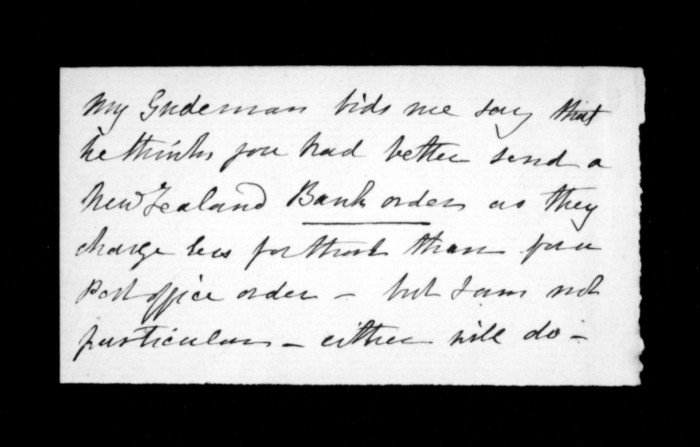 My Gudeman bids me say that
he thinks you had better send a
New Zealand Bank order as they
charge less for that than for a
Post office order – but I am not
particular – either will do –